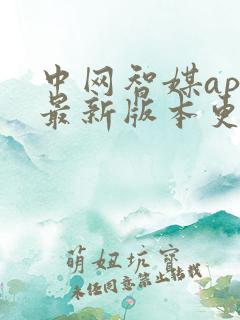 中网智媒ap
最新版本更
萌妞坑寳
未经同意禁止转载